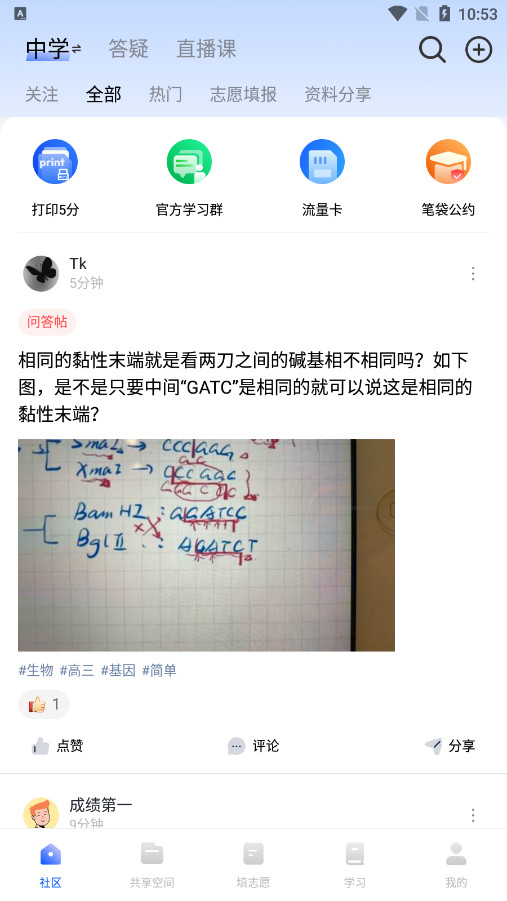 10:53
中学 答疑 直播课
关注 全部 热门 志愿填报 资料分享
print
打印5分 官方学习群 流量卡 笔袋公约
Tk
5分钟
问答帖
相同的黏性末端就是看两刀之间的碱基相不相同吗？如下
图，是不是只要中间“GATC”是相同的就可以说这是相同的
黏性末端？
BamHI : GGATCC
Bgl II : AGATCT
#生物 #高三 #基因 #简单
1
点赞 评论 分享
成绩第一
9分钟
社区 共享空间 填志愿 学习 我的